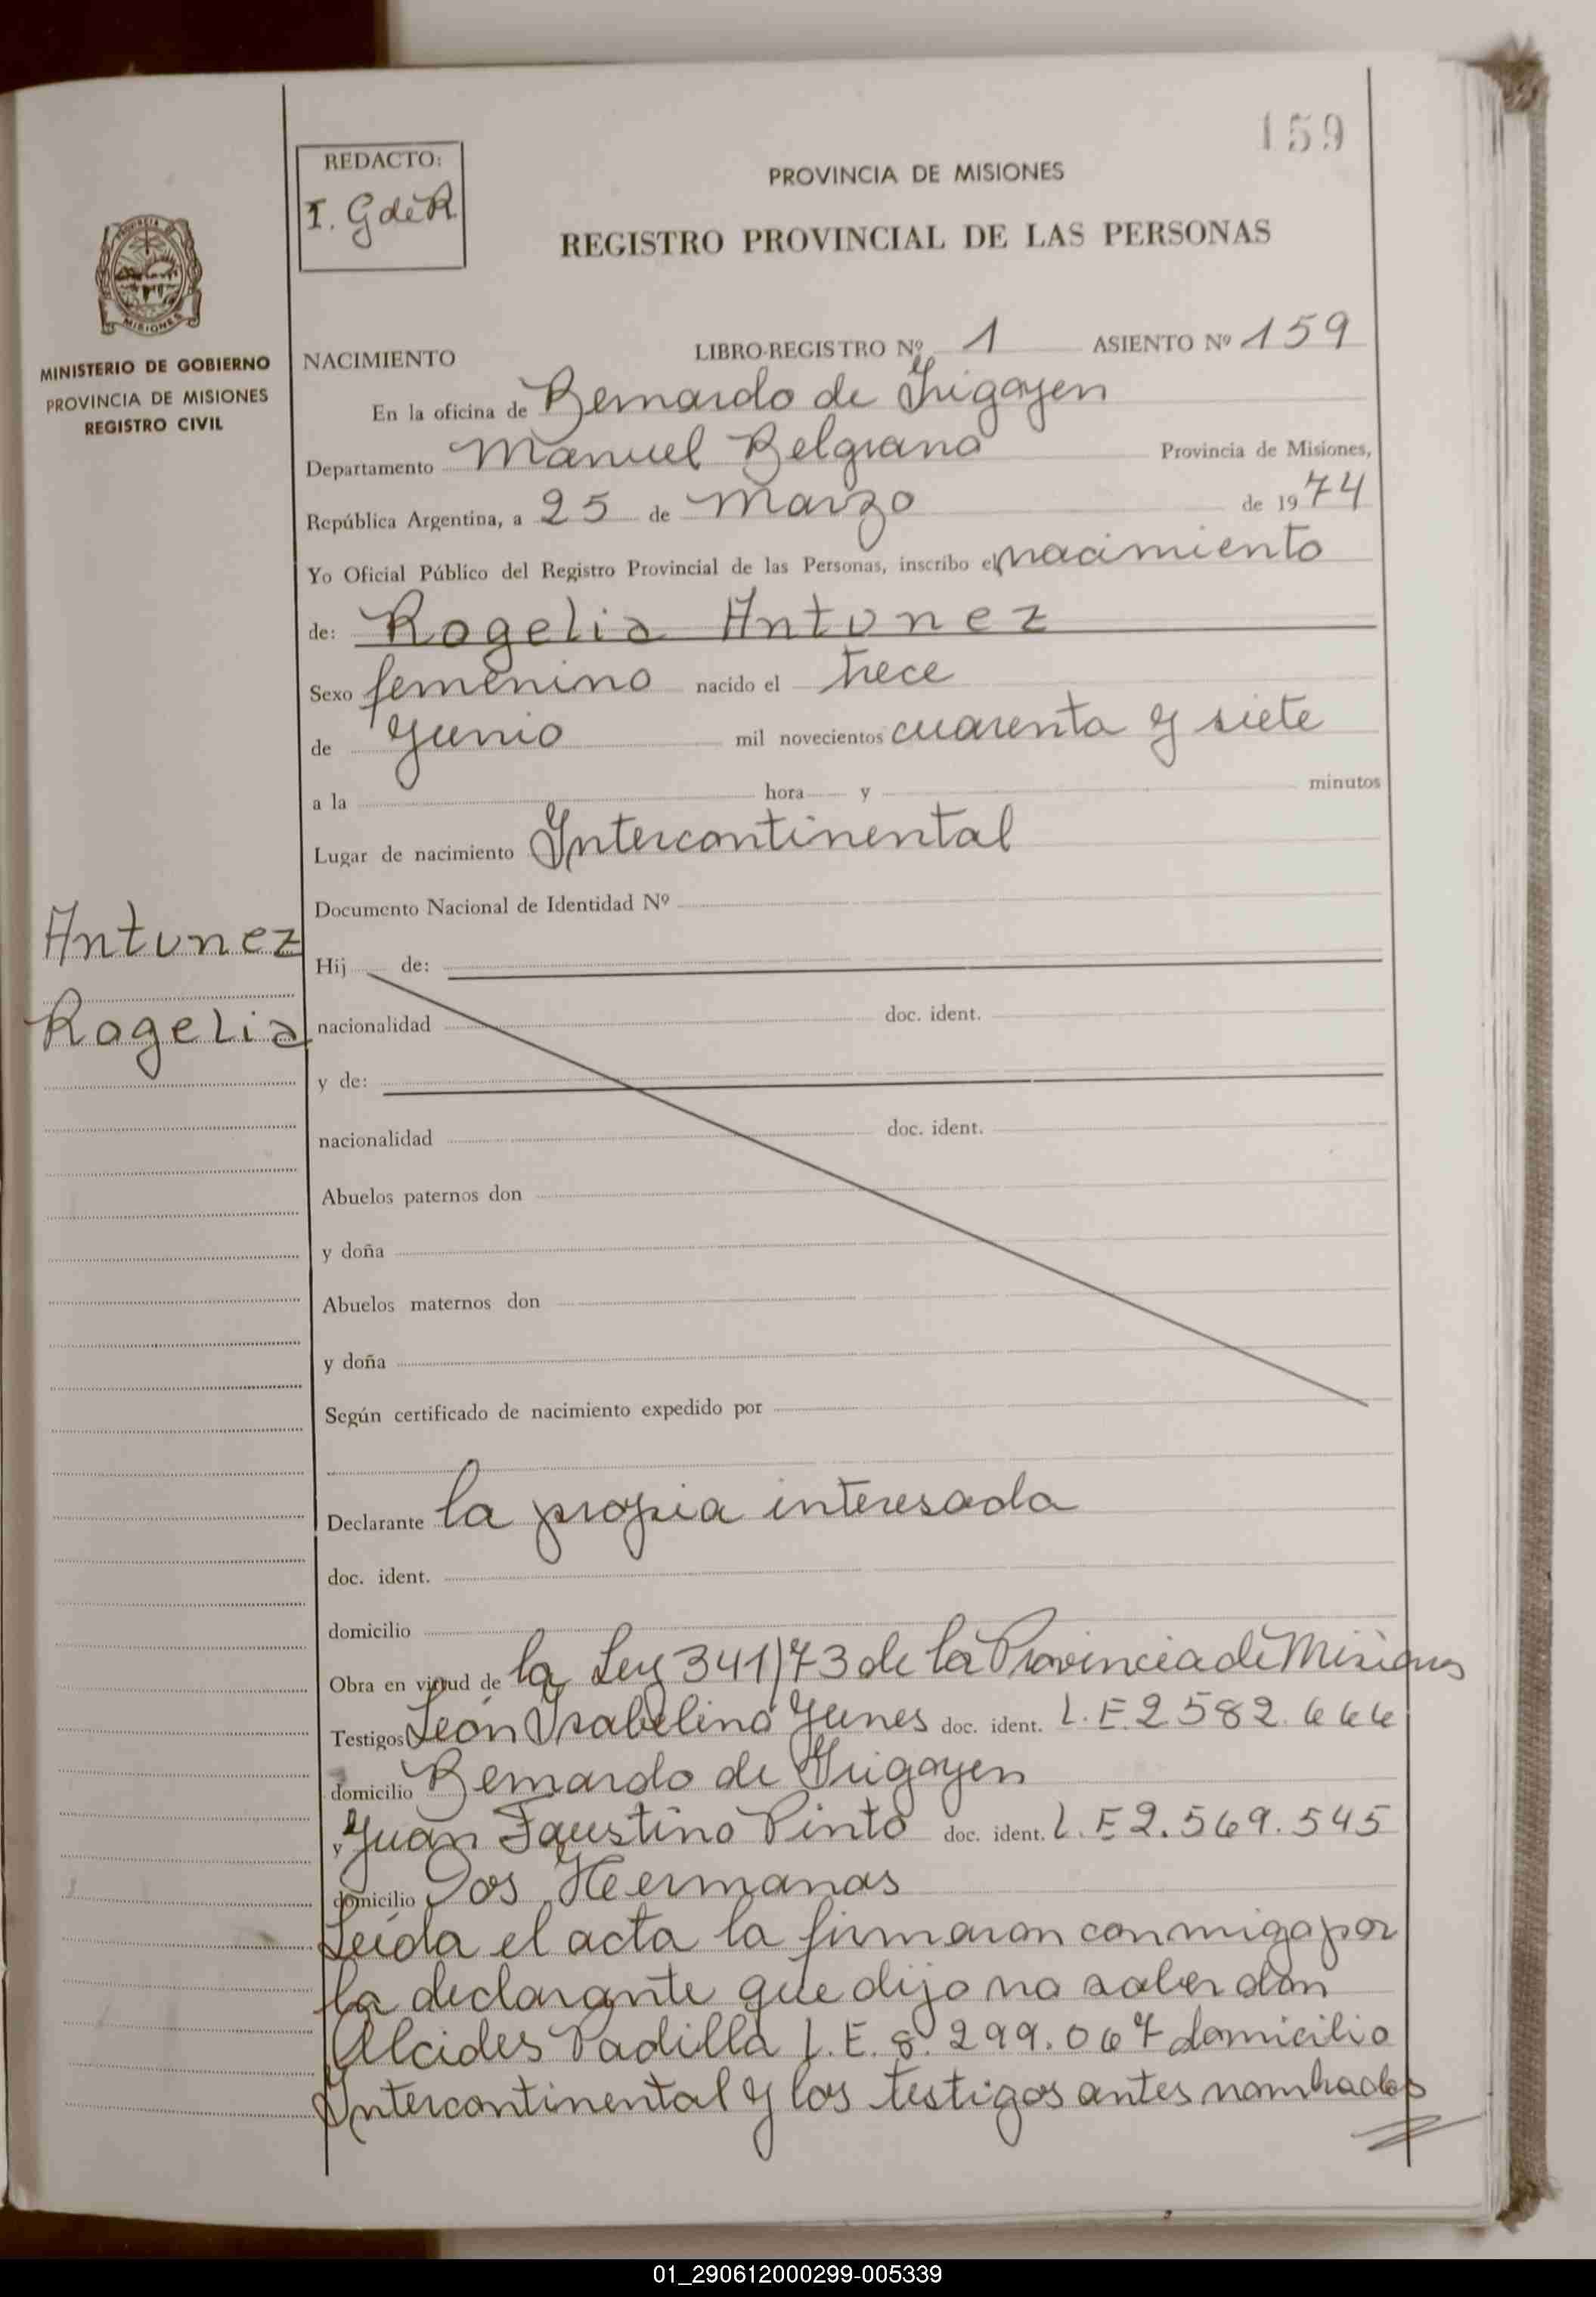 159
REDACTO:
I. GdeR.
PROVINCIA DE MISIONES
REGISTRO PROVINCIAL DE LAS PERSONAS
PROVINCIA DE
MISIONES
MINISTERIO DE GOBIERNO
PROVINCIA DE MISIONES
REGISTRO CIVIL
NACIMIENTO LIBRO-REGISTRO Nº 1 ASIENTO Nº 159
En la oficina de Bernardo de Irigoyen
Departamento Manuel Belgrano Provincia de Misiones,
República Argentina, a 25 de Marzo de 1974
Yo Oficial Público del Registro Provincial de las Personas, inscribo el nacimiento
de: Rogelia Antunez
Sexo femenino nacido el trece
de Junio mil novecientos cuarenta y siete
a la hora y minutos
Lugar de nacimiento Intercontinental
Documento Nacional de Identidad Nº
Antunez
Rogelia
Hij de:
nacionalidad doc. ident.
y de:
nacionalidad doc. ident.
Abuelos paternos don
y doña
Abuelos maternos don
y doña
Según certificado de nacimiento expedido por
Declarante la propia interesada
doc. ident.
domicilio
Obra en virtud de la Ley 341/73 de la Provincia de Misiones
Testigos León Isabelino Yunes doc. ident. L.E. 2582.666
domicilio Bernardo de Irigoyen
y Juan Faustino Pinto doc. ident. L.E 2.569.545
domicilio Dos Hermanas
Leída el acta la firmaron conmigo por
la declarante que dijo no saber don
Alcides Padilla L.E. 8.299.067 domicilio
Intercontinental y los testigos antes nombrados
01_290612000299-005339